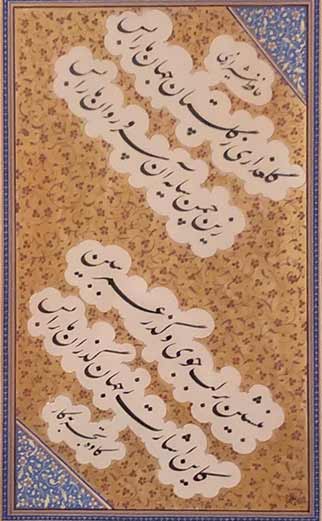 حافظ شیرازی
گلعذاری ز گلستان جهان ما را بس
زین چمن سایه آن سرو روان ما را بس
بنشین بر لب جوی و گذر عمر ببین
کاین اشارت ز جهان گذران ما را بس
کاوه